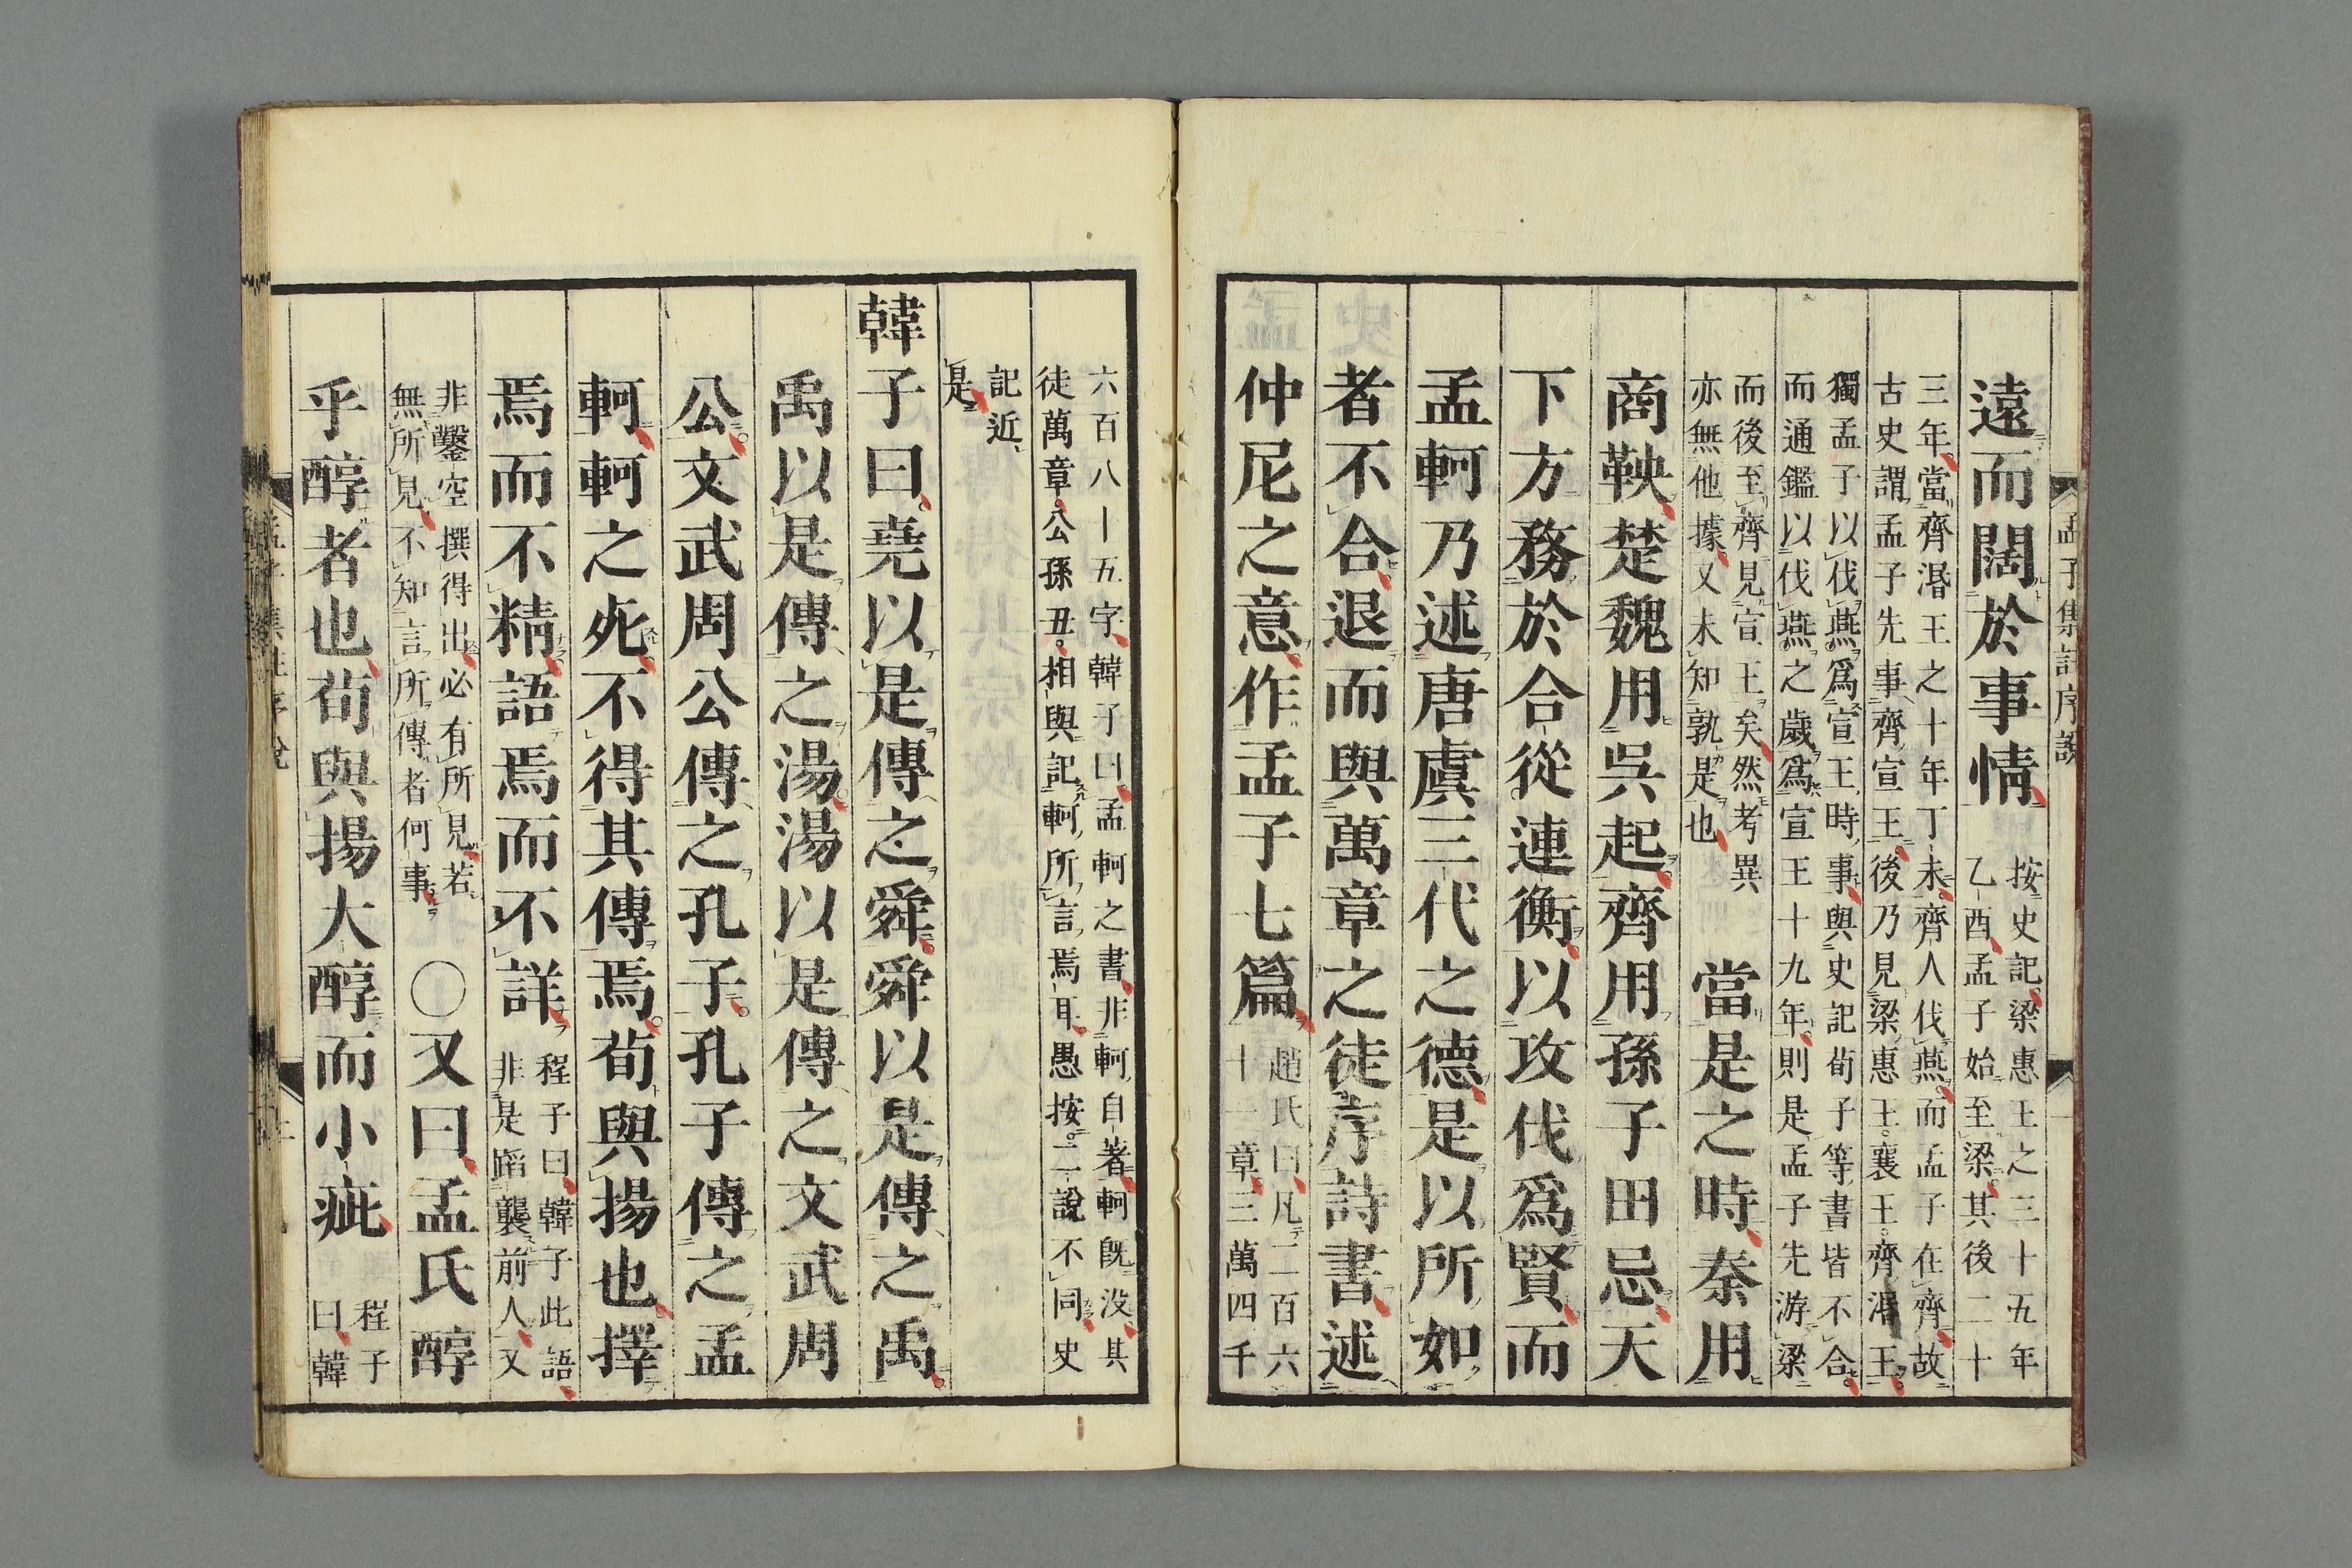 孟子集註序說
遠而闊於事情
按史記梁惠王之三十五年
乙酉孟子始至梁其後二十
三年當齊湣王之十年丁未齊人伐燕而孟子在齊故
古史謂孟子先事齊宣王後乃見梁惠王襄王齊湣王
獨孟子以伐燕爲宣王時事與史記荀子等書皆不合
而通鑑以伐燕之歲爲宣王十九年則是孟子先游梁
而後至齊見宣王矣然考異
亦無他據又未知孰是也
當是之時秦用
商鞅楚魏用吳起齊用孫子田忌天
下方務於合從連衡以攻伐爲賢而
孟軻乃述唐虞三代之德是以所如
者不合退而與萬章之徒序詩書述
仲尼之意作孟子七篇
趙氏曰凡二百六
十一章三萬四千
六百八十五字韓子曰孟軻之書非軻自著軻旣沒其
徒萬章公孫丑相與記軻所言焉耳愚按二說不同史
記近
是
韓子曰堯以是傳之舜舜以是傳之禹
禹以是傳之湯湯以是傳之文武周
公文武周公傳之孔子孔子傳之孟
軻軻之死不得其傳焉荀與揚也擇
焉而不精語焉而不詳
程子曰韓子此語
非是蹈襲前人又
非鑿空撰得出必有所見若
無所見不知言所傳者何事
○又曰孟氏醇
乎醇者也荀與揚大醇而小疵
程子
曰韓